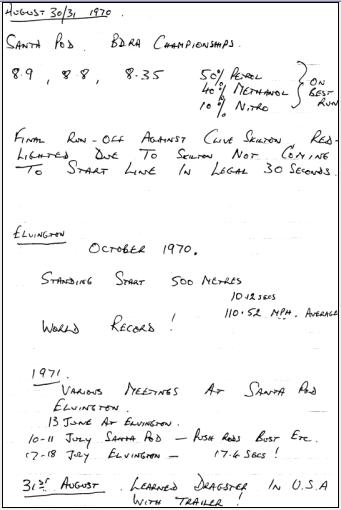 AUGUST 30/31 1970.
SANTA POD. BDRA CHAMPIONSHIPS.
8.9, 8.8, 8.35 50% PETROL
40% METHANOL } ON BEST RUN
10% NITRO
FINAL RUN-OFF AGAINST CLIVE SKILTON RED-
LIGHTED DUE TO SKILTON NOT COMING
TO START LINE IN LEGAL 30 SECONDS.
ELVINGTON
OCTOBER 1970.
STANDING START 500 METRES
10.12 SECS
110.52 MPH. AVERAGE
WORLD RECORD!
1971.
VARIOUS MEETINGS AT SANTA POD
ELVINGTON.
13 JUNE AT ELVINGTON.
10-11 JULY SANTA POD - PUSH RODS BUST ETC.
17-18 JULY ELVINGTON - 17.6 SECS!
31ST AUGUST. LEARNED DRAGSTER IN U.S.A
WITH TRAILER!